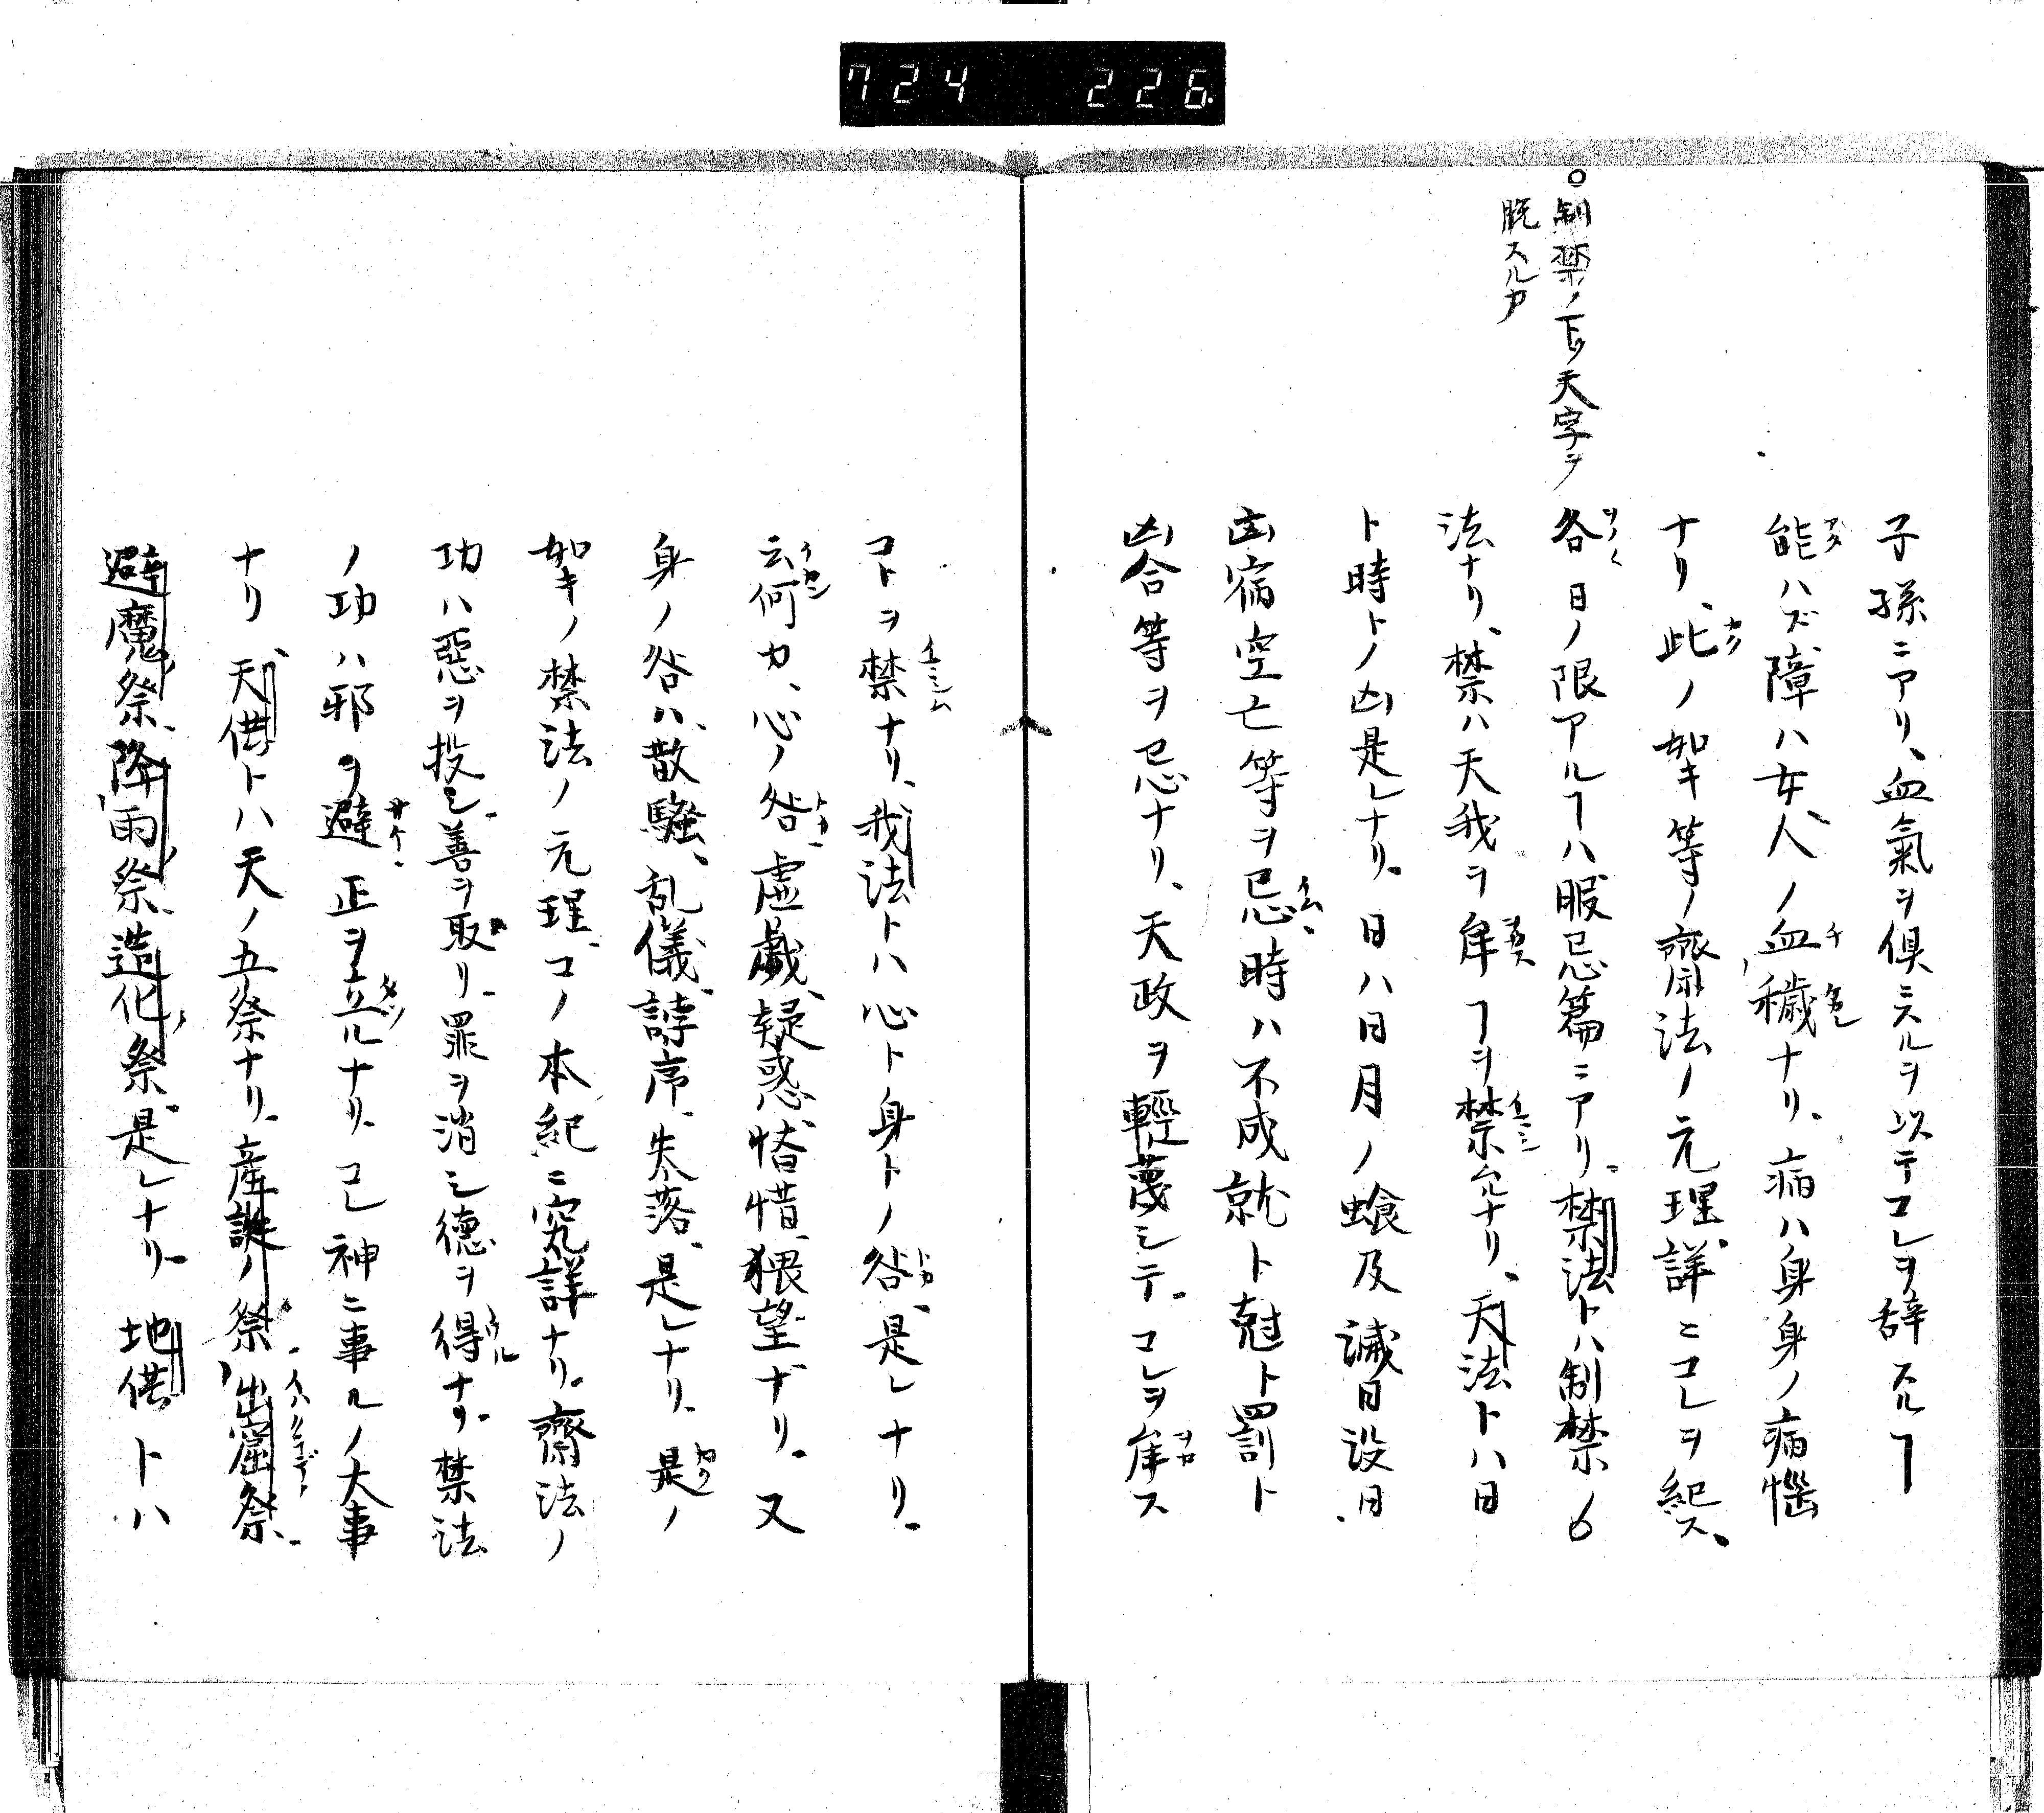 724 226.
○制禁ノ下夕天字ヲ
脱スルカ
子孫ニアリ、血氣ヲ倶ニスルヲ以テコレヲ辞スルヿ
能ハズ、障ハ女人ノ血穢ナリ、病ハ身身ノ病惱
ナリ、此ノ如キ等ノ齋法ノ元理、詳ニコレヲ紀ス、
各日ノ限アルヿハ、服忌篇ニアリ、禁法トハ制禁ノ
法ナリ、禁ハ天我ヲ㞷ヿヲ禁ムルナリ、天法トハ日
ト時トノ凶是レナリ。日ハ日月ノ蝕及滅日没日
凶宿空亡等ヲ忌、時ハ不成就ト尅ト罰ト
凶合等ヲ忌ナリ、天政ヲ輕蔑シテ、コレヲ㞷ス
コトヲ禁ナリ、我法トハ心ト身トノ咎、是レナリ。
云何カ、心ノ咎、虚戯、疑惑、悋惜、猥望ナリ。又
身ノ咎ハ、散騒、乱儀、誖序、失落、是レナリ、是ノ
如キノ禁法ノ元理、コノ本紀ニ究詳ナリ。齋法ノ
功ハ惡ヲ投シ、善ヲ取リ、罪ヲ消シ德ヲ得ナリ。禁法
ノ功ハ邪ヲ避、正ヲ立ルナリ、コレ神ニ事ルノ大事
ナリ、天供トハ天ノ五祭ナリ、産誕ノ祭、出窟祭、
避魔祭、降雨祭、造化祭、是レナリ。地供トハ